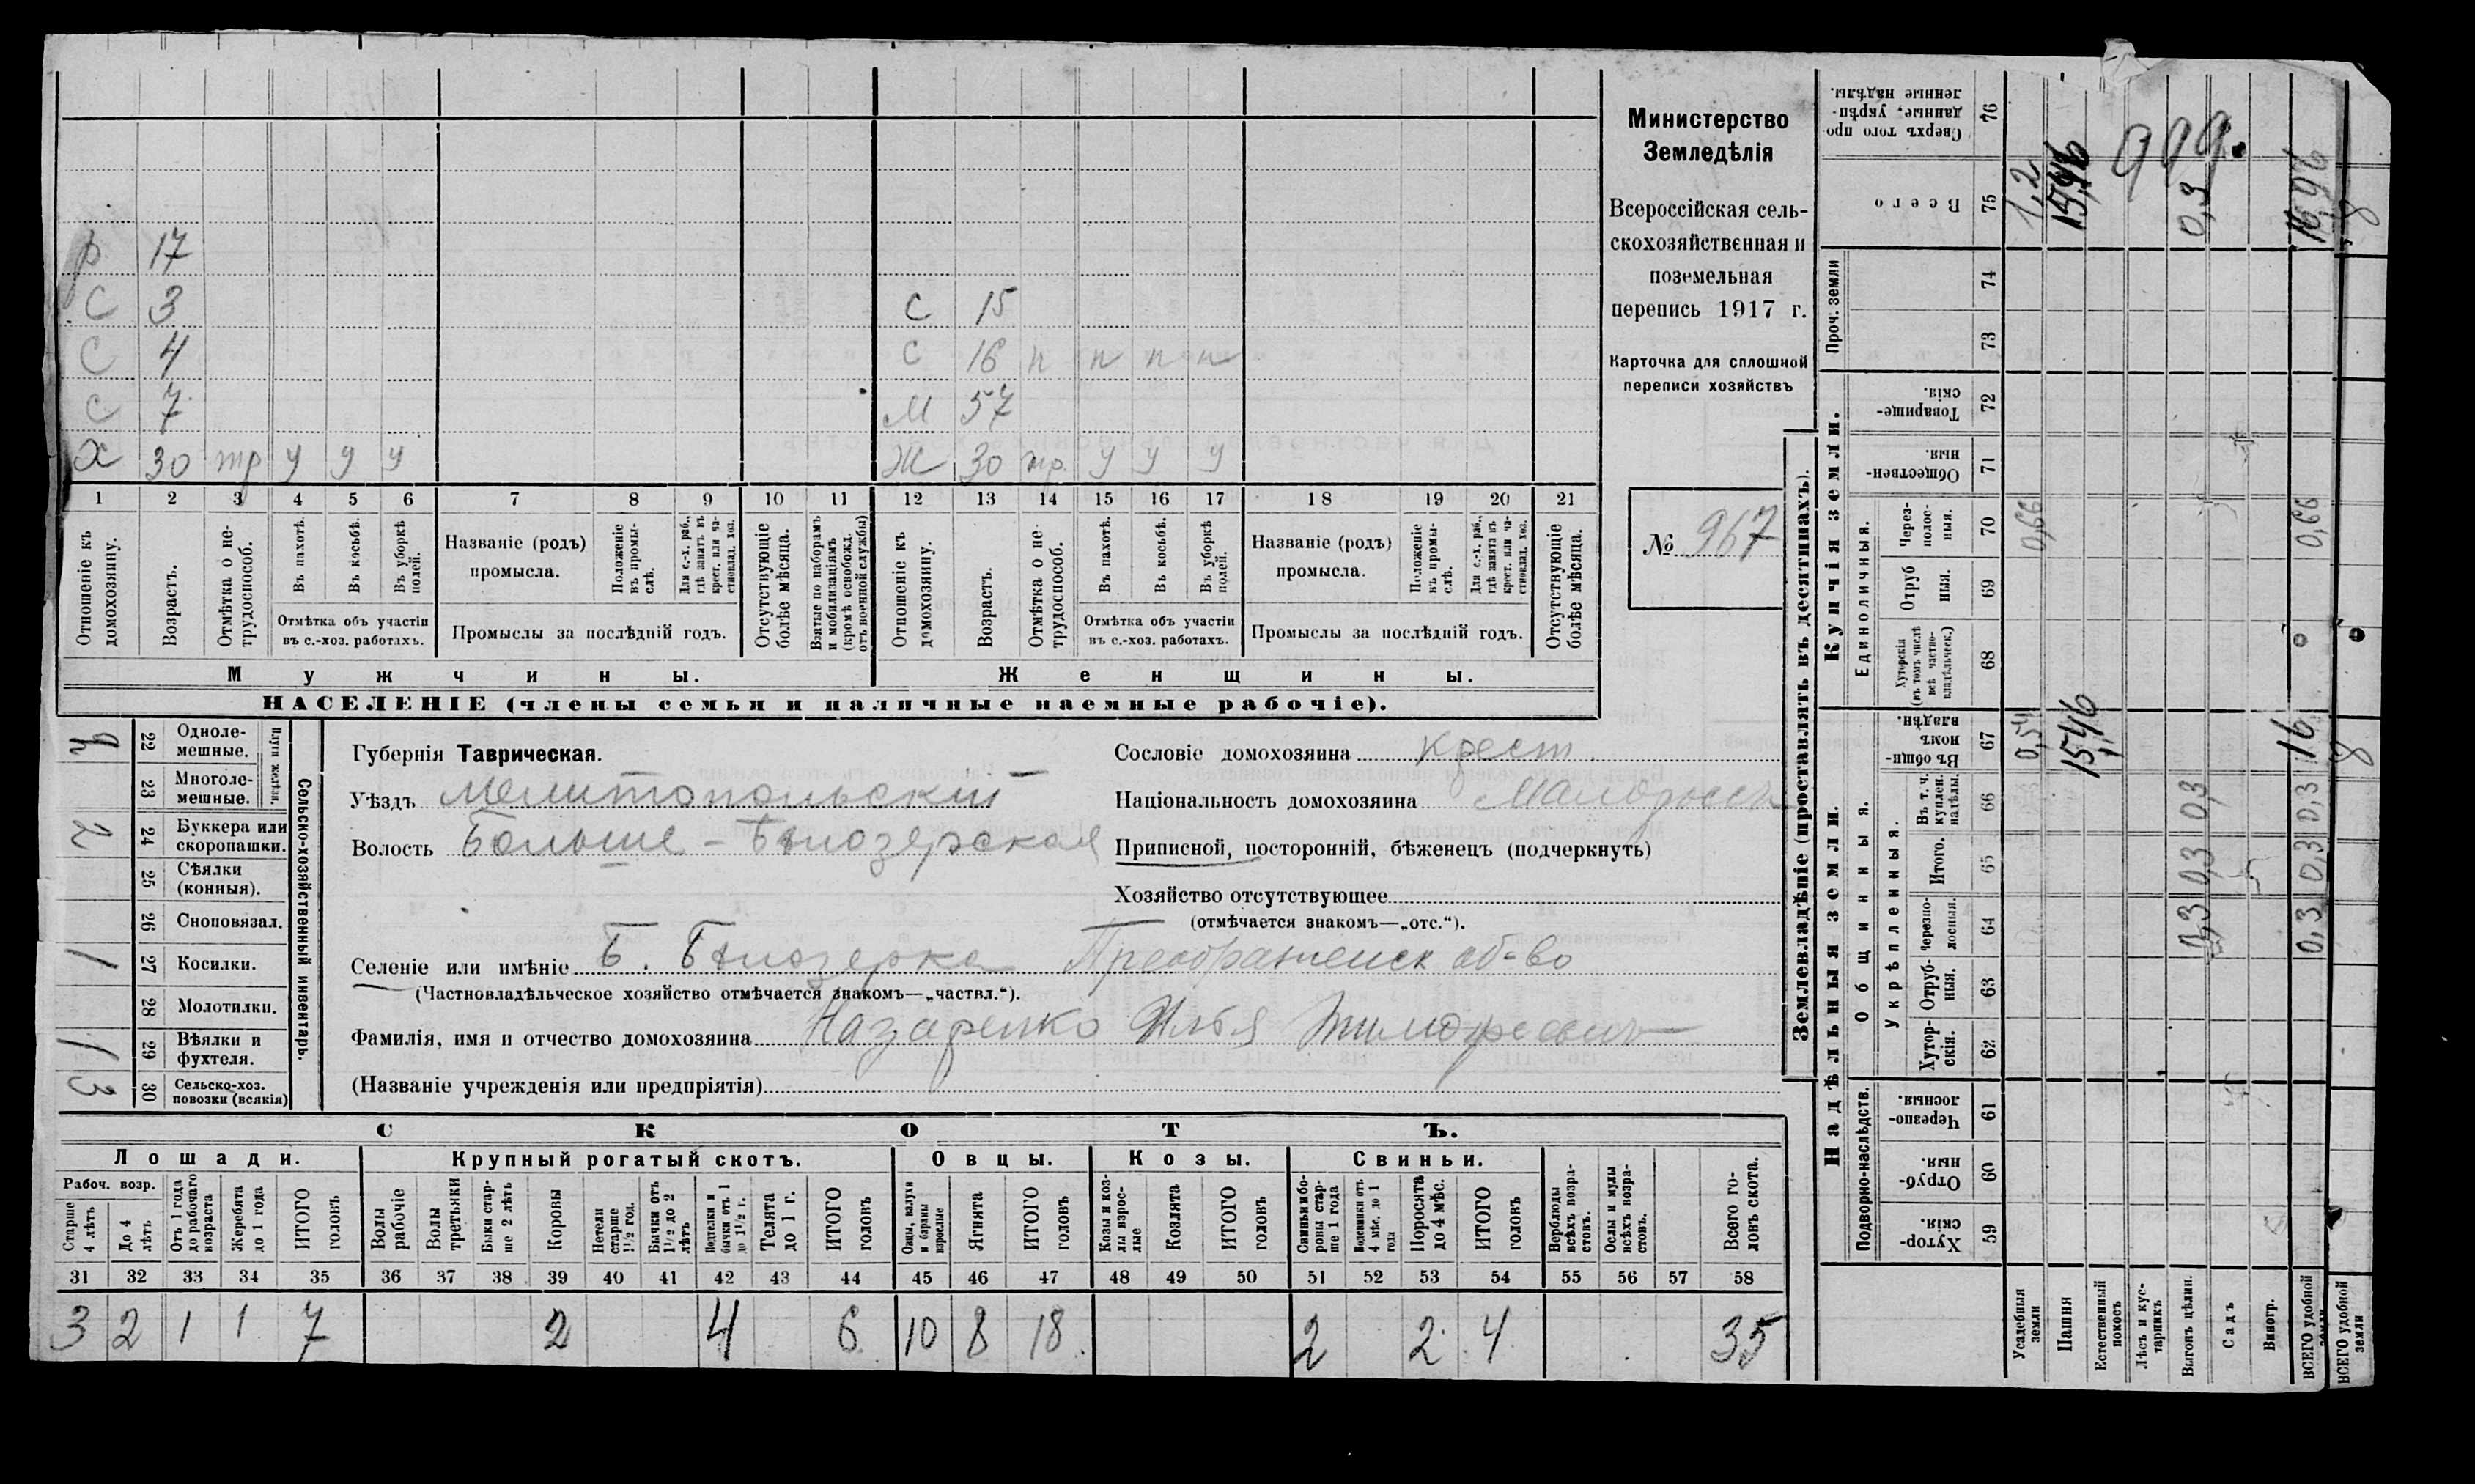 р 17
С 3
С 4
С 7
Х 30 тр у у у
С 15
С 16 п п п п
М 57
Ж 30 тр. у у у
1 2 3 4 5 6 7 8 9 10 11 12 13 14 15 16 17 18 19 20 21
Отношеніе къ домохозяину.
Возрастъ.
Отмѣтка о не-трудоспособ.
Въ пахотѣ.
Въ косьбѣ.
Въ уборкѣ полей.
Отмѣтка объ участіи
въ с.-хоз. работахъ.
Названіе (родъ)
промысла.
Положеніе въ промы-слѣ.
Для с.-х. раб., гдѣ занятъ въ крест. или ча-стновлад. хоз.
Промыслы за послѣдній годъ.
Отсутствующіе болѣе мѣсяца.
Взятые по наборамъ и мобилизаціямъ (кромѣ освобожд. отъ военной службы)
Отношеніе къ домохозяину.
Возрастъ.
Отмѣтка о не-трудоспособ.
Въ пахотѣ.
Въ косьбѣ.
Въ уборкѣ полей.
Отмѣтка объ участіи
въ с.-хоз. работахъ.
Названіе (родъ)
промысла.
Положеніе въ промы-слѣ.
Для с.-х. раб., гдѣ занята въ крест. или ча-стновлад. хоз.
Промыслы за послѣдній годъ.
Отсутствующіе болѣе мѣсяца.
Мужчины.
Женщины.
НАСЕЛЕНІЕ (члены семьи и наличные наемные рабочіе).
Министерство
Земледѣлія
Всероссійская сель-
скохозяйственная и
поземельная
перепись 1917 г.
Карточка для сплошной
переписи хозяйствъ
№ 967
Сельско-хозяйственный инвентарь.
Плуги желѣзн.
22 Одноле-мешные.
23 Многоле-мешные.
2 24 Буккера или скоропашки.
25 Сѣялки (конныя).
26 Сноповязал.
1 27 Косилки.
28 Молотилки.
1 29 Вѣялки и фухтеля.
3 30 Сельско-хоз. повозки (всякія)
Губернія Таврическая.
Уѣздъ Мелитопольскій
Волость Больше-Бѣлозерская
Селеніе или имѣніе Б. Бѣлозерка Преображенск об-во
(Частновладѣльческое хозяйство отмѣчается знакомъ—„частвл.“).
Фамилія, имя и отчество домохозяина Назаренко Илья Тимофеевичъ
(Названіе учрежденія или предпріятія)
Сословіе домохозяина крест.
Національность домохозяина Малороссъ
Приписной, посторонній, бѣженецъ (подчеркнуть)
Хозяйство отсутствующее
(отмѣчается знакомъ—„отс.“).
СКОТЪ.
Лошади. Крупный рогатый скотъ. Овцы. Козы. Свиньи.
Рабоч. возр.
Старше 4 лѣтъ
До 4 лѣтъ
Отъ 1 года до рабочаго возраста
Жеребята до 1 года
ИТОГО головъ
Волы рабочіе
Волы третьяки
Быки стар-ше 2 лѣтъ
Коровы
Нетели старше 1½ год.
Бычки отъ 1½ до 2 лѣтъ
Подтелки и бычки отъ 1 до 1½ г.
Телята до 1 г.
ИТОГО головъ
Овцы, валухи и бараны взрослые
Ягнята
ИТОГО головъ
Козы и коз-лы взрос-лые
Козлята
ИТОГО головъ
Свиньи и бо-ровы стар-ше 1 года
Подсвинки отъ 4 мѣс. до 1 года
Поросята до 4 мѣс.
ИТОГО головъ
Верблюды всѣхъ возра-стовъ.
Ослы и мулы всѣхъ возра-стовъ.
Всего го-ловъ скота.
31 32 33 34 35 36 37 38 39 40 41 42 43 44 45 46 47 48 49 50 51 52 53 54 55 56 57 58
3 2 1 1 7 2 4 6 10 8 18 2 2 4 35
Землевладѣніе (проставлять въ десятинахъ).
Надѣльныя земли.
Купчія земли.
Проч. земли
Подворно-наслѣдств.
Общинныя.
Укрѣпленныя.
Единоличныя.
Сверхъ того про-данные, укрѣп-ленные надѣлы. 76
Всего 75 1,2 15,46 0,3 16,96
999.
74
73
Товарище-скія. 72
Обществен-ныя. 71
Через-полос-ныя. 70 0,66 0,66
Отруб ныя. 69
Хуторскія (въ томъ числѣ всѣ частно-владѣльческ.) 68
Въ общин-номъ владѣн. 67 0,54 15,46 16
Въ т. ч. куплен. надѣлы. 66 0,3 0,3
Итого. 65 0,3 0,3
Черезпо-лосныя. 64 0,3 0,3
Отруб-ныя. 63
Хутор-скія. 62
Черезпо-лосныя. 61
Отруб-ныя. 60
Хутор-скія. 59
Усадебныя земли
Пашня
Естественный покосъ
Лѣсъ и кус-тарникъ
Выгонъ цѣлин.
Садъ
Виногр.
ВСЕГО удобной
ВСЕГО удобной земли